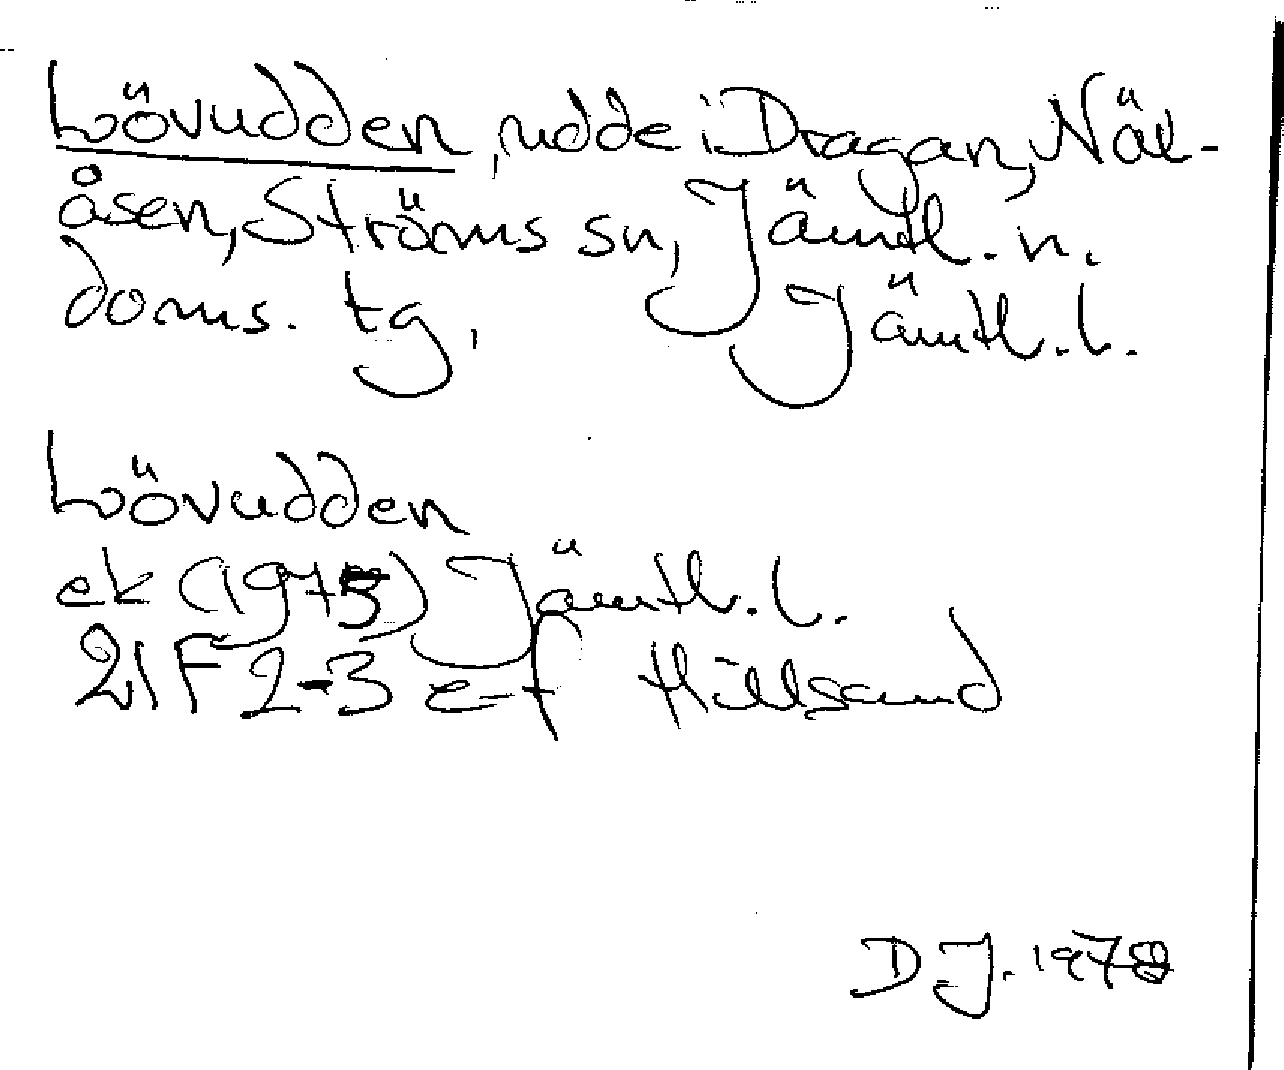 Lövudden, udde i Dragan, Näl-
åsen, Ströms sn, Jämtl. n.
doms. tg, Jämtl. l.
Lövudden
ek (1975) Jämtl. l.
21F 2-3 e-f Hillsand
DJ. 1978